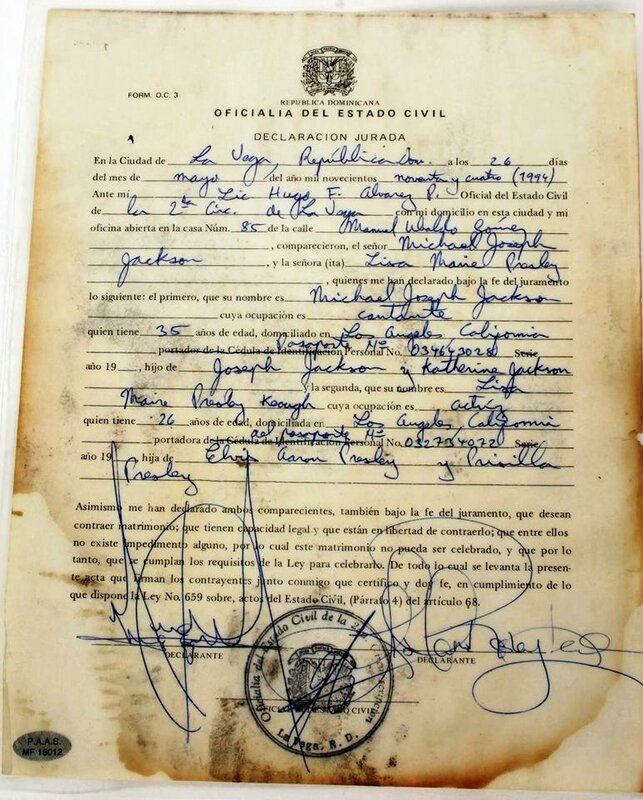 FORM. O.C. 3
REPUBLICA DOMINICANA
OFICIALIA DEL ESTADO CIVIL
DECLARACION JURADA
En la Ciudad de La Vega, República Dom. a los 26 días
del mes de mayo del año mil novecientos noventa y cuatro (1994)
Ante mí Lic Hugo F. Alvarez P. Oficial del Estado Civil
de la 2da Circ. de La Vega con mi domicilio en esta ciudad y mi
oficina abierta en la casa Núm. 85 de la calle Manuel Ubaldo Gomez
, comparecieron, el señor Michael Joseph
Jackson , y la señora (ita) Lisa Marie Presley
, quienes me han declarado bajo la fe del juramento
lo siguiente: el primero, que su nombre es Michael Joseph Jackson
cuya ocupación es cantante
quien tiene 35 años de edad, domiciliado en Los Angeles California
Pasaporte No
portador de la Cédula de Identificación Personal No. 034643028 Serie
año 19 , hijo de Joseph Jackson y Katherine Jackson
y la segunda, que su nombre es Lisa
Marie Presley Keough cuya ocupación es actriz
quien tiene 26 años de edad, domiciliada en Los Angeles, California
del Pasaporte No
portadora de la Cédula de Identificación Personal No. 032734072 Serie
año 19 hija de Elvis Aaron Presley y Prisilla
Presley
Asimismo me han declarado ambos comparecientes, también bajo la fe del juramento, que desean
contraer matrimonio; que tienen capacidad legal y que están en libertad de contraerlo; que entre ellos
no existe impedimento alguno, por lo cual este matrimonio no pueda ser celebrado, y que por lo
tanto, que se cumplan los requisitos de la Ley para celebrarlo. De todo lo cual se levanta la presen-
te acta que firman los contrayentes junto conmigo que certifico y doy fe, en cumplimiento de lo
que dispone la Ley No. 659 sobre, actos del Estado Civil, (Párrafo 4) del artículo 68.
DECLARANTE DECLARANTE
Oficialía del Estado Civil de la 2da Circunscripción
OFICIAL DEL ESTADO CIVIL
La Vega, R. D.
P.A.A.S.
MF 16012